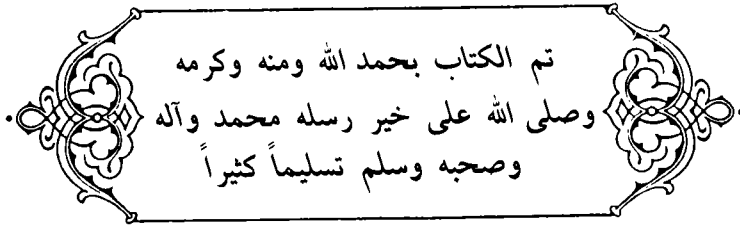 تم الكتاب بحمد الله ومنه وكرمه
وصلى الله على خير رسله محمد وآله
وصحبه وسلم تسليماً كثيراً